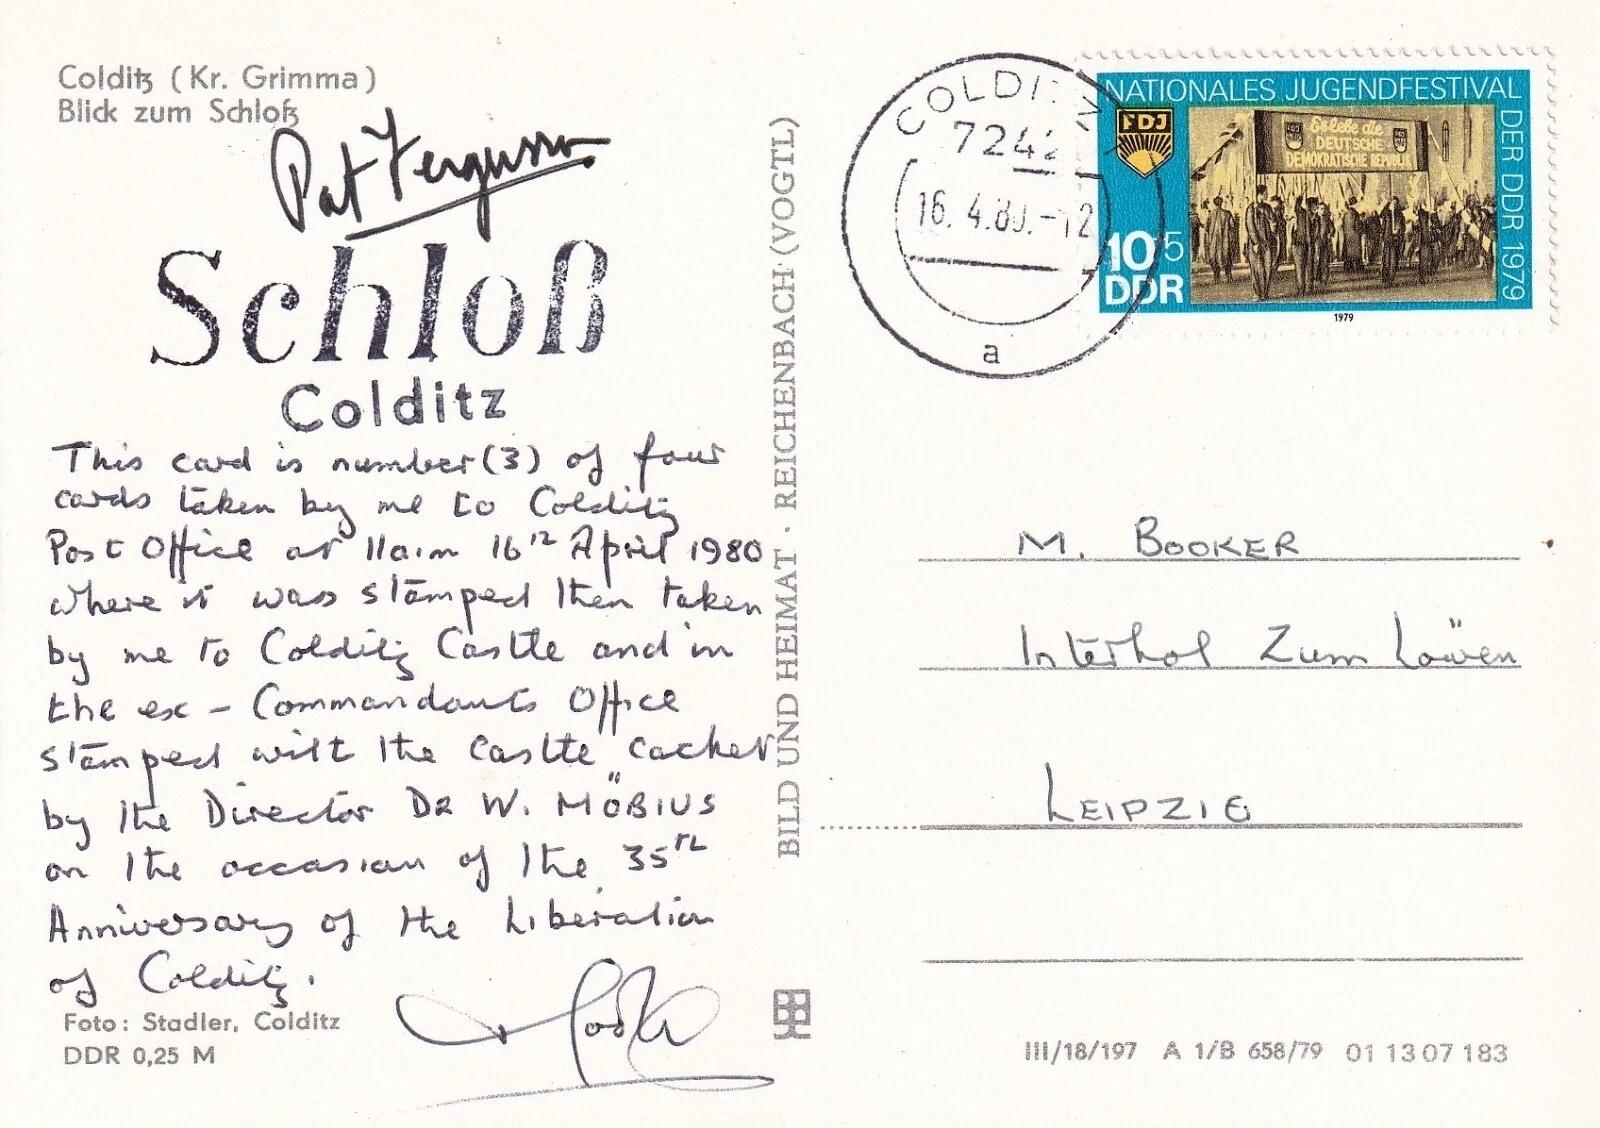 Colditz (Kr. Grimma)
Blick zum Schloß
Pat Fergusson
Schloß
Colditz
This card is number (3) of four
cards taken by me to Colditz
Post Office at 11a.m 16th April 1980
where it was stamped then taken
by me to Colditz Castle and in
the ex-Commandants Office
stamped with the Castle cachet
by the Director DR W. MÖBIUS
on the occasion of the 35th
Anniversary of the Liberation
of Colditz.
Foto: Stadler, Colditz
DDR 0,25 M
BILD UND HEIMAT · REICHENBACH (VOGTL)
COLDITZ
7242
16.4.80.-12
a
NATIONALES JUGENDFESTIVAL
DER DDR 1979
FDJ
Es lebe die
DEUTSCHE
DEMOKRATISCHE REPUBLIK
10+5
DDR
1979
M. BOOKER
Interhol Zum Löwen
LEIPZIG
III/18/197 A 1/B 658/79 01 13 07 183